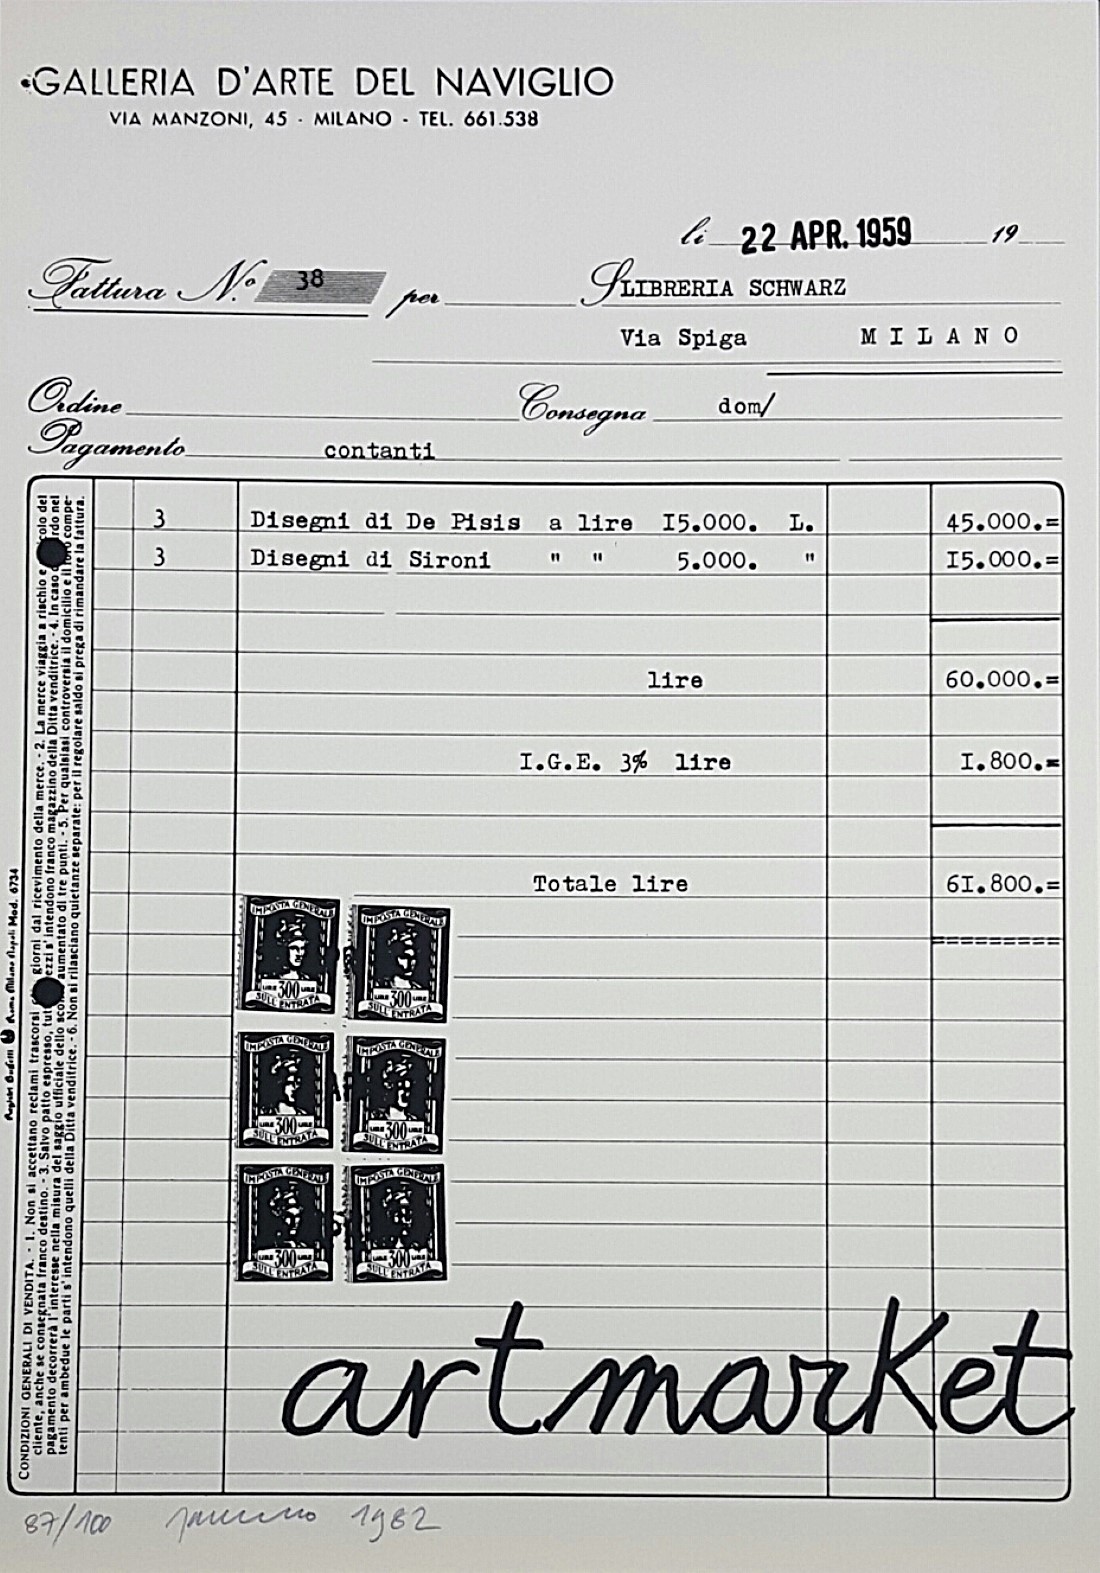 GALLERIA D'ARTE DEL NAVIGLIO
VIA MANZONI, 45 - MILANO - TEL. 661.538
li 22 APR. 1959 19
Fattura N.º 38 per S LIBRERIA SCHWARZ
Via Spiga MILANO
Ordine Consegna dom/
Pagamento contanti
3 Disegni di De Pisis a lire I5.000. L. 45.000.=
3 Disegni di Sironi " " 5.000. " I5.000.=
lire 60.000.=
I.G.E. 3% lire I.800.=
Totale lire 6I.800.=
IMPOSTA GENERALE LIRE 300 LIRE SULL'ENTRATA
IMPOSTA GENERALE LIRE 300 LIRE SULL'ENTRATA
IMPOSTA GENERALE LIRE 300 LIRE SULL'ENTRATA
IMPOSTA GENERALE LIRE 300 LIRE SULL'ENTRATA
IMPOSTA GENERALE LIRE 300 LIRE SULL'ENTRATA
IMPOSTA GENERALE LIRE 300 LIRE SULL'ENTRATA
artmarket
CONDIZIONI GENERALI DI VENDITA. - 1. Non si accettano reclami trascorsi giorni dal ricevimento della merce. - 2. La merce viaggia a rischio e del
cliente, anche se consegnata franco destino. - 3. Salvo patto espresso, s'intendono franco magazzino della Ditta venditrice. - 4. In caso nel
pagamento decorrerà l'interesse nella misura del saggio ufficiale dello aumentato di tre punti. - 5. Per qualsiasi controversia il domicilio e il compe-
tenti per ambedue le parti s'intendono quelli della Ditta venditrice. - 6. Non si rilasciano quietanze separate: per il regolare saldo si prega di rimandare la fattura.
Milano Napoli Mod. 6734
87/100 1982